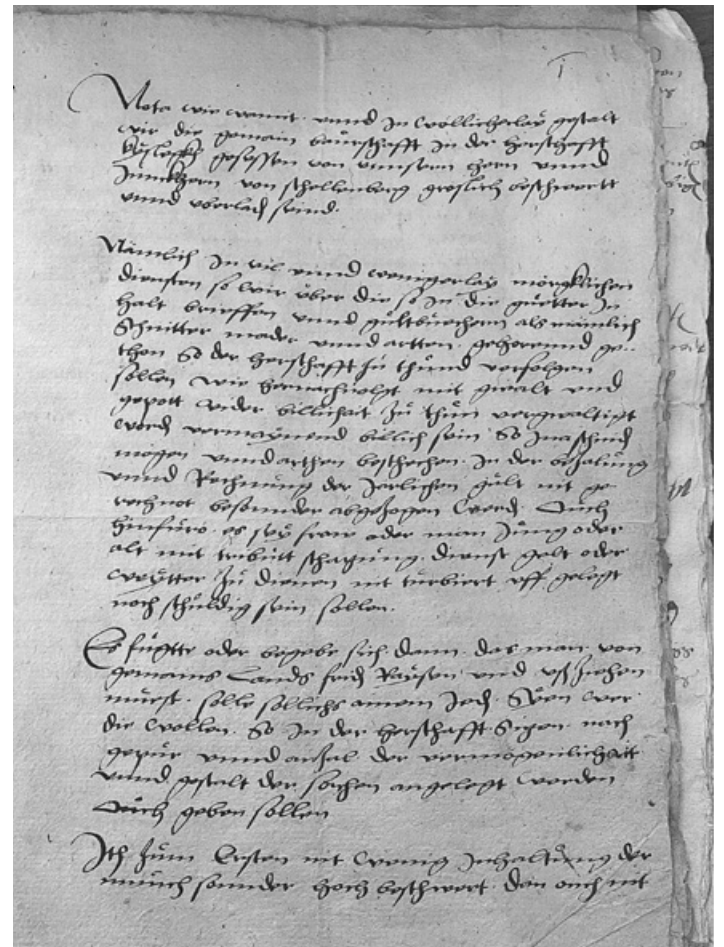 1
Nota wie womit vnnd Jn wöllicherlaÿ gestalt
wir die gemain baurschafft Jn der herschafft
Kÿslegkh gesessen von vnnsern hern vnnd
Junckhern von schellenberg groslich beschwertt
vnnd vberlad seind.
Nämlich Jn vil vnnd wenigerlaÿ mörgkhlichen
diensten so wir über die so Jn die güetter Jn
halt brieffen vnnd gültbüechern als nämlich
Schnitter mader vnnd artten gehorennd ge-
thon So der herschafft zu thund verfolgen
sollen wie hernachuolgt mit gwalt vnd
gepott wider billichait zu thun vergwaltigt
werd vermaÿnend billich sein So
mögen vnnd arthen beschechen Jn der bezalung
vnnd Rechnung der Jarlichen gült nit ge
rechnet besonnder abgezogen werd. Auch
hinfüro es seÿ frow oder man Jung oder
alt mit tributt schatzung dienst gelt oder
weÿtter zu dienen nit turbiert vff gelegt
noch schuldig sein sollen.
Es fugtte oder begebe sich dann das man von
gemains Lands frid Raÿsen vnd vsziehen
müest. solle sollichs ainem Jed. Seÿen wer
die wollen. So Jn der herschafft Sigen nach
gepür vnnd anzal der vermögenlichait
vnnd gestalt der sachen angelegt werden
Auch geben sollen
Jtem zum Ersten nit wenig Jnhaltung der
münch sonnder hoch beschwert dan ouch nit